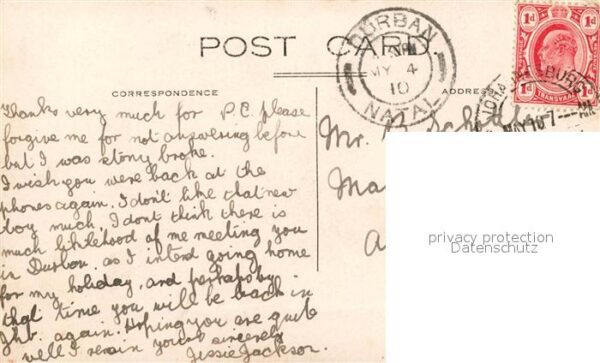 POST CARD.
DURBAN
MY 4
10
NATAL
1d 1d
TRANSVAAL
JOHANNESBURG
MAY 10 7-- AM
CORRESPONDENCE
ADDRESS
Thanks very much for P.C. please
forgive me for not answering before
but I was stony broke.
I wish you were back at the
phones again. I don't like that new
boy much. I dont think there is
much likelihood of me meeting you
in Durban. as I intend going home
for my holiday, and perhaps by
that time you will be back in
Jhb. again. Hoping you are quite
well I remain yours sincerely
Jessie Jackson.
Mr.
Ma
privacy protection
Datenschutz